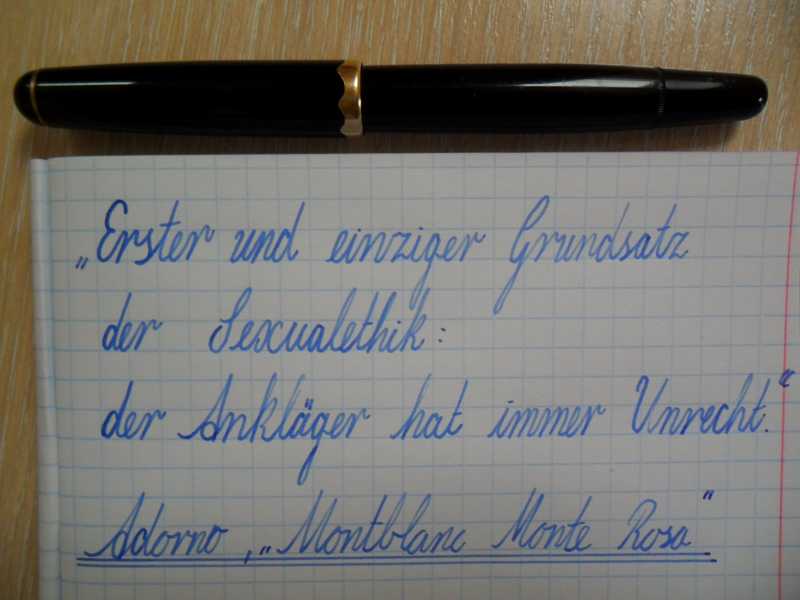 „Erster und einziger Grundsatz
der Sexualethik:
der Ankläger hat immer Unrecht.“
Adorno, „Montblanc Monte Rosa“